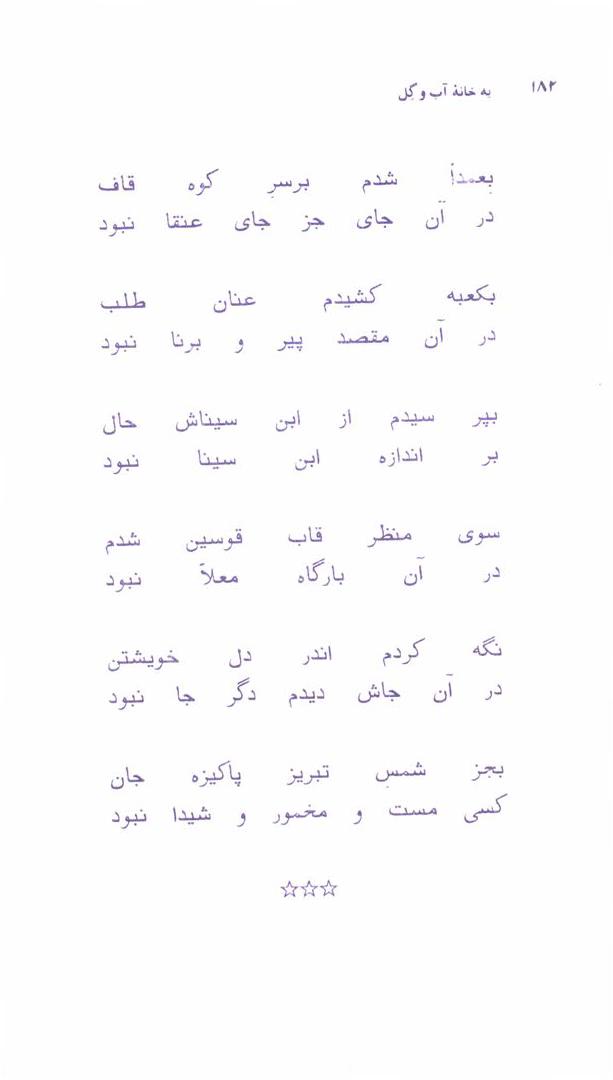 ۱۸۲ به خانهٔ آب و گِل
بِعمداً شدم برسرِ کوه قاف
در آن جای جز جای عنقا نبود
بکعبه کشیدم عنان طلب
در آن مقصد پیر و برنا نبود
بپر سیدم از ابن سیناش حال
بر اندازه ابن سینا نبود
سوی منظر قاب قوسین شدم
در آن بارگاه معلاّ نبود
نگه کردم اندر دل خویشتن
در آن جاش دیدم دگر جا نبود
بجز شمسِ تبریز پاکیزه جان
کسی مست و مخمور و شیدا نبود
☆☆☆